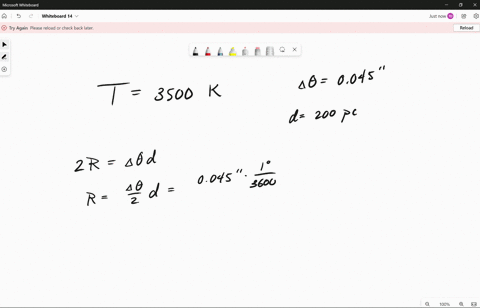 Microsoft Whiteboard
Whiteboard 14
Just now
Try Again Please reload or check back later.
Reload
T = 3500 K
Δθ = 0.045"
d = 200 pc
2R = Δθ d
R = Δθ/2 d = 0.045" · 1°/3600
100%